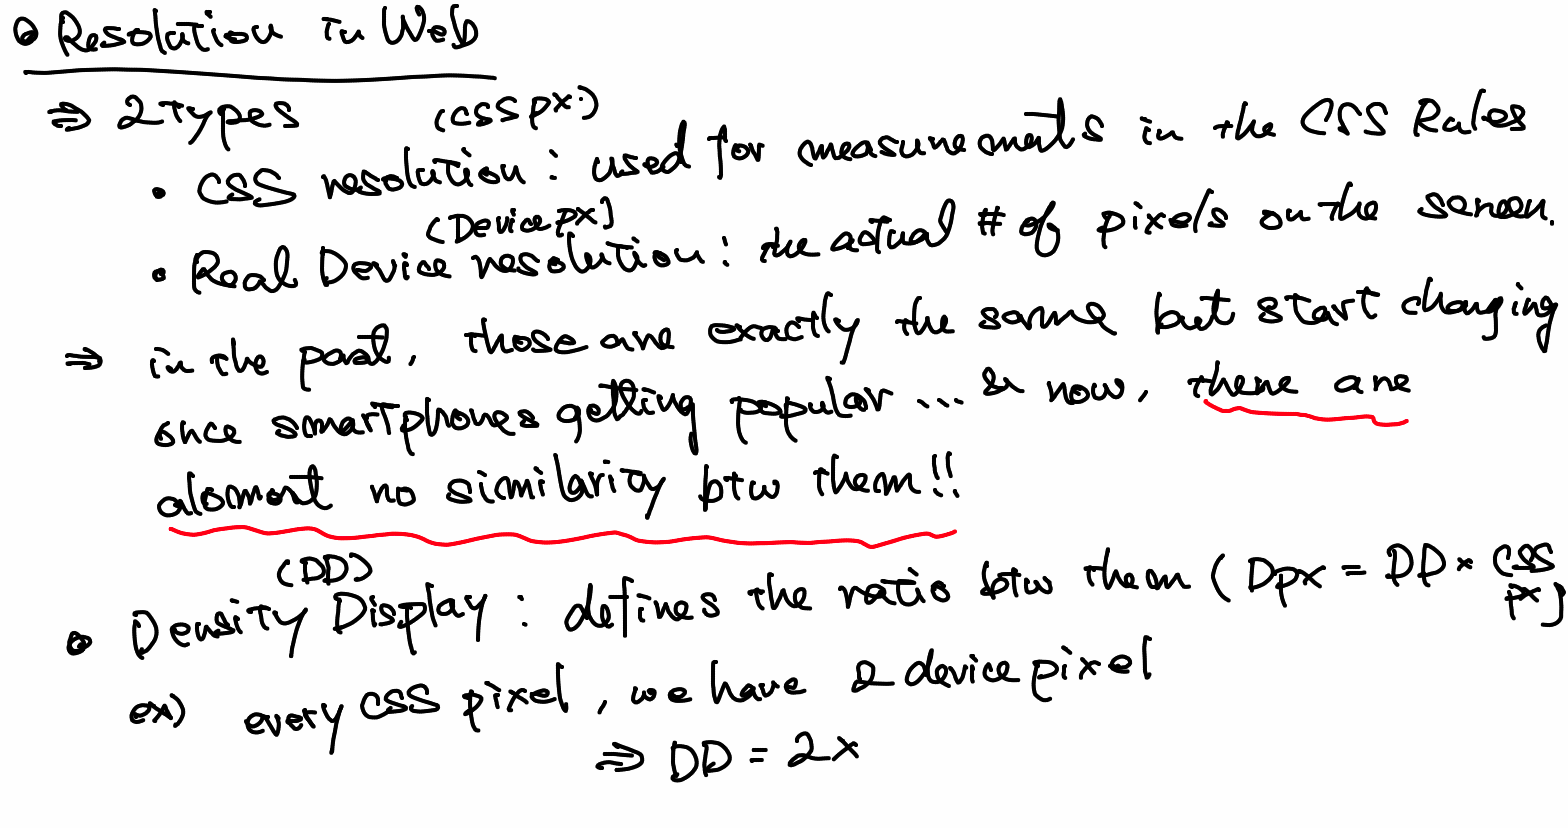 Resolution in Web
⇒ 2 Types
(CSS px.)
• CSS resolution : used for measurements in the CSS Rules
(Device px)
• Real Device resolution : the actual # of pixels on the screen.
⇒ in the past, those are exactly the same but start changing
once smartphones getting popular ... & now, there are
alomost no similarity btw them!!
(DD)
Density Display : defines the ratio btw them ( Dpx = DD × CSS
px)
ex) every CSS pixel, we have 2 device pixel
⇒ DD = 2x